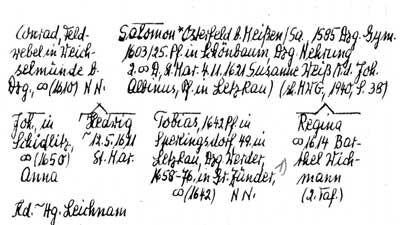 Conrad, Feld-
webel in Weich-
selmünde b.
Dzg, ∞ (1610) N N.
Salomon * Osterfeld b. Meißen/Sa., 1585 Dzg. Gym.
1603/25. Pf. in Schönbaum, Dzg Nehrung
2. ∞ D, St. Mar. 4.11.1621 Susanne Weiß (T. d. Joh.
Albinus, Pf. in Letzkau) (1940, S. 38)
Joh., in
Schidlitz,
∞ (1650)
Anna
Kd. ~ Hg. Leichnam
Hedwig
~ 12.5.1621
St. Mar.
Tobias, 1642 Pf. in
Sperlingsdorf, 49. in
Letzkau, Dzg Werder,
1658-76. in Gr. Zünder,
∞ (1642) N N.
Regina
∞ 1614 Bar-
thel Wich-
mann
(2. Taf.)